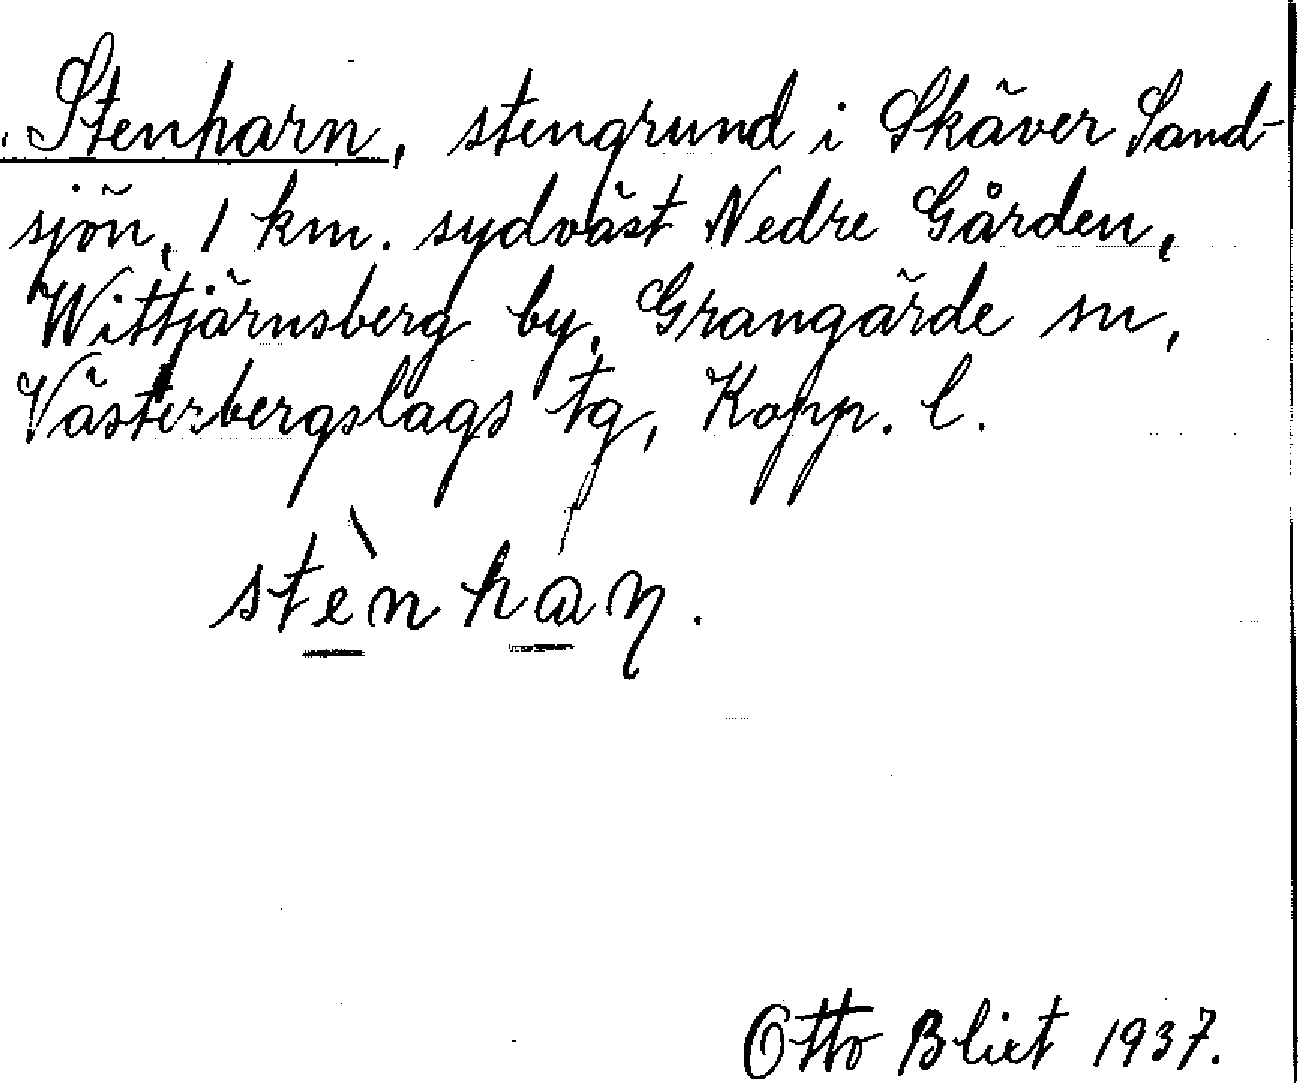 Stenharn, stengrund i Skäver Sand-
sjön, 1 km. sydväst Nedre Gården,
Wittjärnsberg by, Grangärde sn,
Västerbergslags tg, Kopp. l.
stènhan.
Otto Blixt 1937.